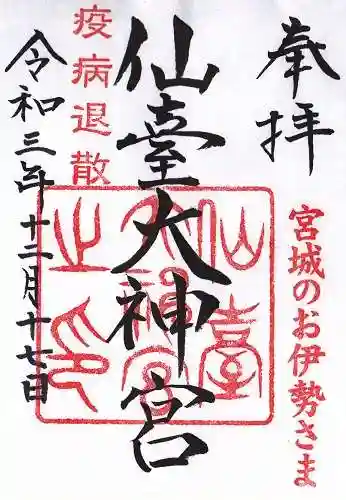 奉拝
宮城のお伊勢さま
仙臺大神宮
仙臺
大神宮
之印
疫病退散
令和三年十二月十七日